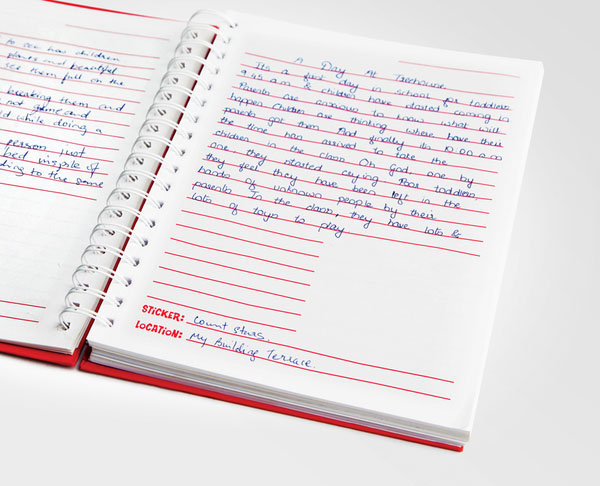 to see how children
plants and beautiful
see them fall on the
breaking them and
not shine and
d while doing a
person just
bed inspite of
ding to the same
A Day At Treehouse.
Its a first day in school for toddlers
9.45 a.m & children have started coming in
Parents are anxious to know what will
happen Children are thinking where have their
parents got them. And finally its 10.00 a.m
the time has arrived to take the
children in the class. Oh God, one by
one they started crying Poor toddlers,
they feel they have been left in the
hands of unknown people by their
parents. In the class, they have lots &
lots of toys to play
STICKER: Count Stars.
LOCATION: My Building Terrace.